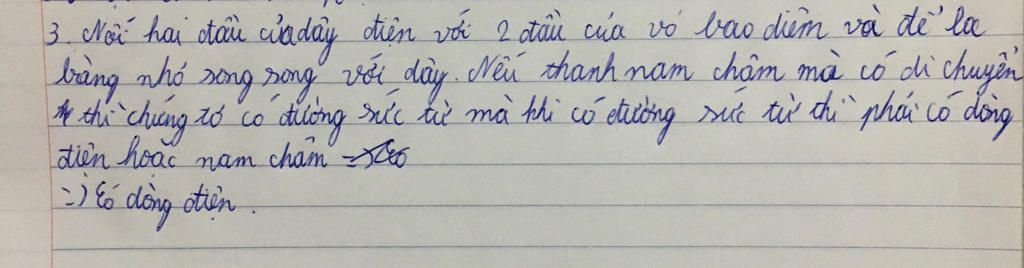 3. Nối hai đầu của dây điện với 2 đầu của vỏ bao diêm và để la
bàng nhỏ song song với dây. Nếu thanh nam châm mà có di chuyển
thì chứng tỏ có đường sức từ mà khi có đường sức từ thì phải có dòng
điện hoặc nam châm
=) Có dòng điện.